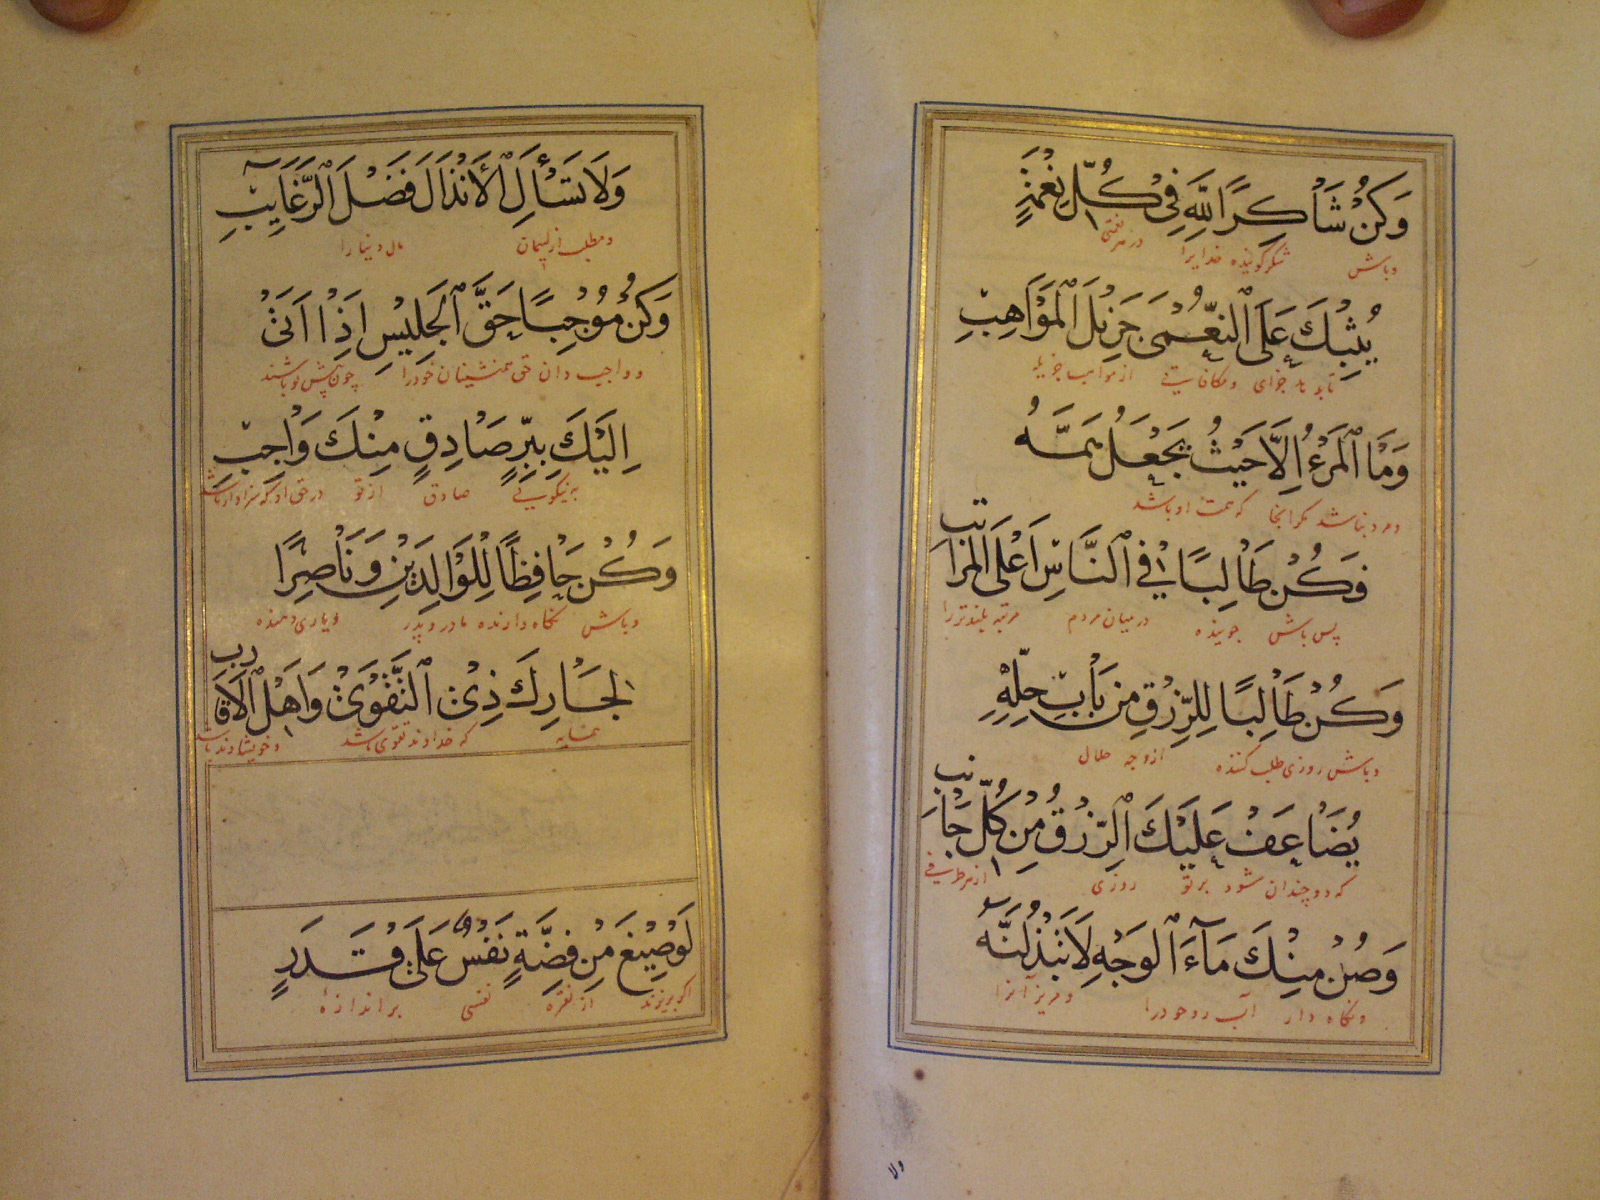 وَكُنْ شَاكِرًا لِلَّهِ فِي كُلِّ نِعْمَةٍ
وباش شکر گوینده خدایرا در هر نعمتی
يُثِبْكَ عَلَى النُّعْمَى جَزِيلَ الْمَوَاهِبِ
جزای ومکافات از مواهب جزیل
وَمَا الْمَرْءُ إِلَّا حَيْثُ يَجْعَلُ هَمَّهُ
ومرد نباشد مگر انجا که همت او باشد
فَكُنْ طَالِبًا فِي النَّاسِ أَعْلَى الْمَرَاتِبِ
پس باش جوینده در میان مردم مرتبه بلندتر را
وَكُنْ طَالِبًا لِلرِّزْقِ مِنْ بَابِ حِلِّهِ
وباش روزی طلب کننده از وجه حلال
يُضَاعَفْ عَلَيْكَ الرِّزْقُ مِنْ كُلِّ جَانِبِ
که دو چندان شود بر تو روزی از هر طرفی
وَصُنْ مِنْكَ مَآءَ الْوَجْهِ لَا تَبْذُلَنَّهُ
ونگاه دار آب رو خود را ومریز آنرا
ولا
وَلَا تَسْأَلِ الْأَنْذَالَ فَضْلَ الرَّغَايِبِ
ومطلب از لئیمان مال دنیا را
وَكُنْ مُوْجِبًا حَقَّ الْجَلِيْسِ اِذَا اَتَىٰ
وواجب دان حق همنشینان خود را چون پیش تو باشند
اِلَيْكَ بِبِرٍّ صَادِقٍ مِنْكَ وَاجِبِ
به نیکویی صادق از تو در حق او که سزاوار باشد
وَكُنْ حَافِظًا لِلْوَالِدَيْنِ وَنَاصِرًا
وباش نگاه دارنده مادر وپدر ویاری دهنده
لِجَارِكَ ذِي التَّقْوَىٰ وَاَهْلِ الْاَقَارِبِ
همسایه که خداوند تقوی باشد وخویشاوند باشد
لَوْصِيْغَ مِنْ فِضَّةٍ نَفْسٌ عَلَىٰ قَدَرٍ
اگر بریزند از نقره نفسی بر اندازهٔ